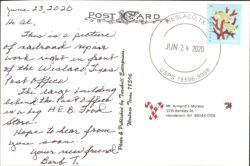 June 23, 2020
POST CARD
WESLACO, TX
JUN 24 2020
USPS 78596-9998
Hi Al,
This is a picture
of railroad repair
work right in front
of the Weslaco, Texas
Post Office.
The large building
behind the Post Office
is a big H.E.B. Food
Store.
Hope to hear from
you soon.
your new friend
Barb T.
Photo & Published by Turnbull Enterprises,
Weslaco, Texas 78596
Mr. Armand J. Moreau
Henderson, NV